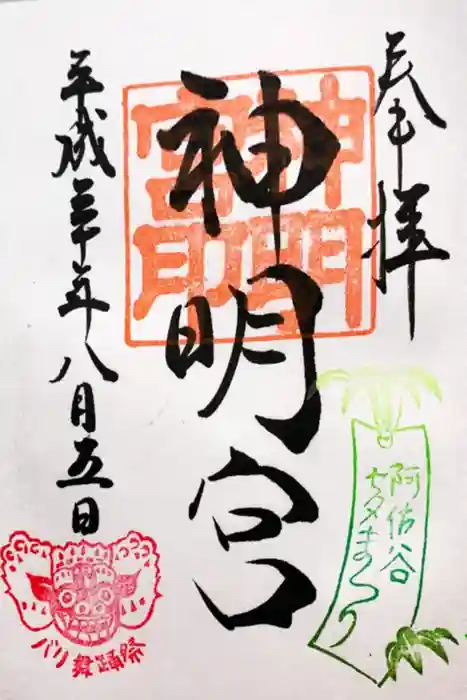 奉拝
神明宮
神明宮印
平成三十年八月五日
阿佐谷
七夕まつり
バリ舞踊祭